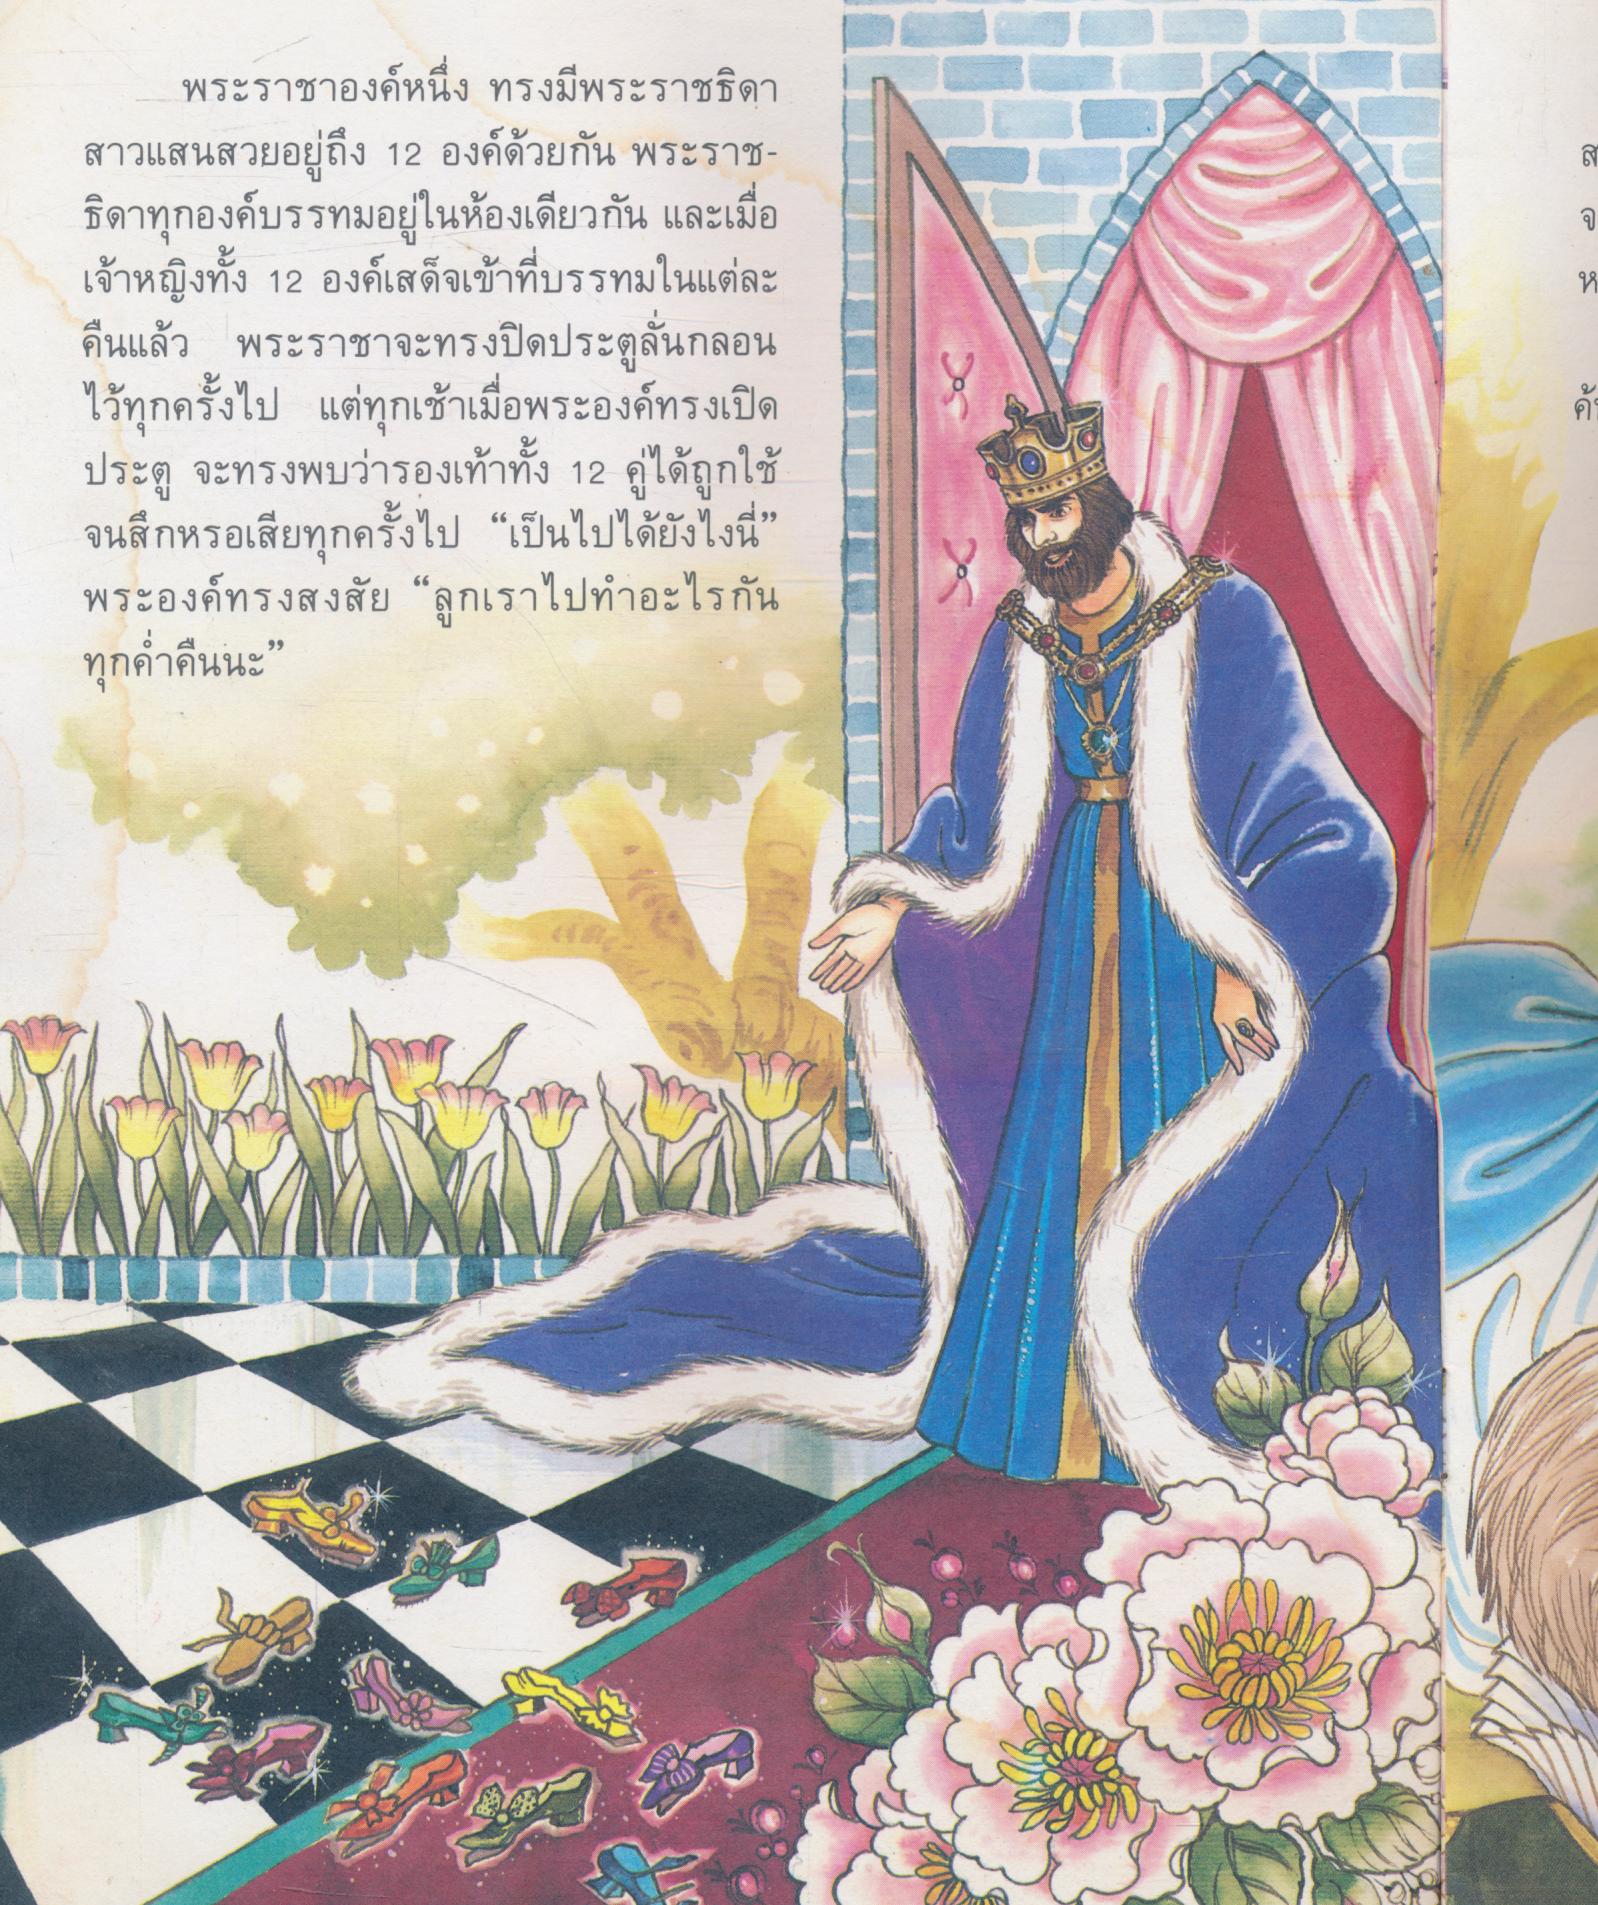 พระราชาองค์หนึ่ง ทรงมีพระราชธิดา
สาวแสนสวยอยู่ถึง 12 องค์ด้วยกัน พระราช-
ธิดาทุกองค์บรรทมอยู่ในห้องเดียวกัน และเมื่อ
เจ้าหญิงทั้ง 12 องค์เสด็จเข้าที่บรรทมในแต่ละ
คืนแล้ว พระราชาจะทรงปิดประตูลั่นกลอน
ไว้ทุกครั้งไป แต่ทุกเช้าเมื่อพระองค์ทรงเปิด
ประตู จะทรงพบว่ารองเท้าทั้ง 12 คู่ได้ถูกใช้
จนสึกหรอเสียทุกครั้งไป “เป็นไปได้ยังไงนี่”
พระองค์ทรงสงสัย “ลูกเราไปทำอะไรกัน
ทุกค่ำคืนนะ”